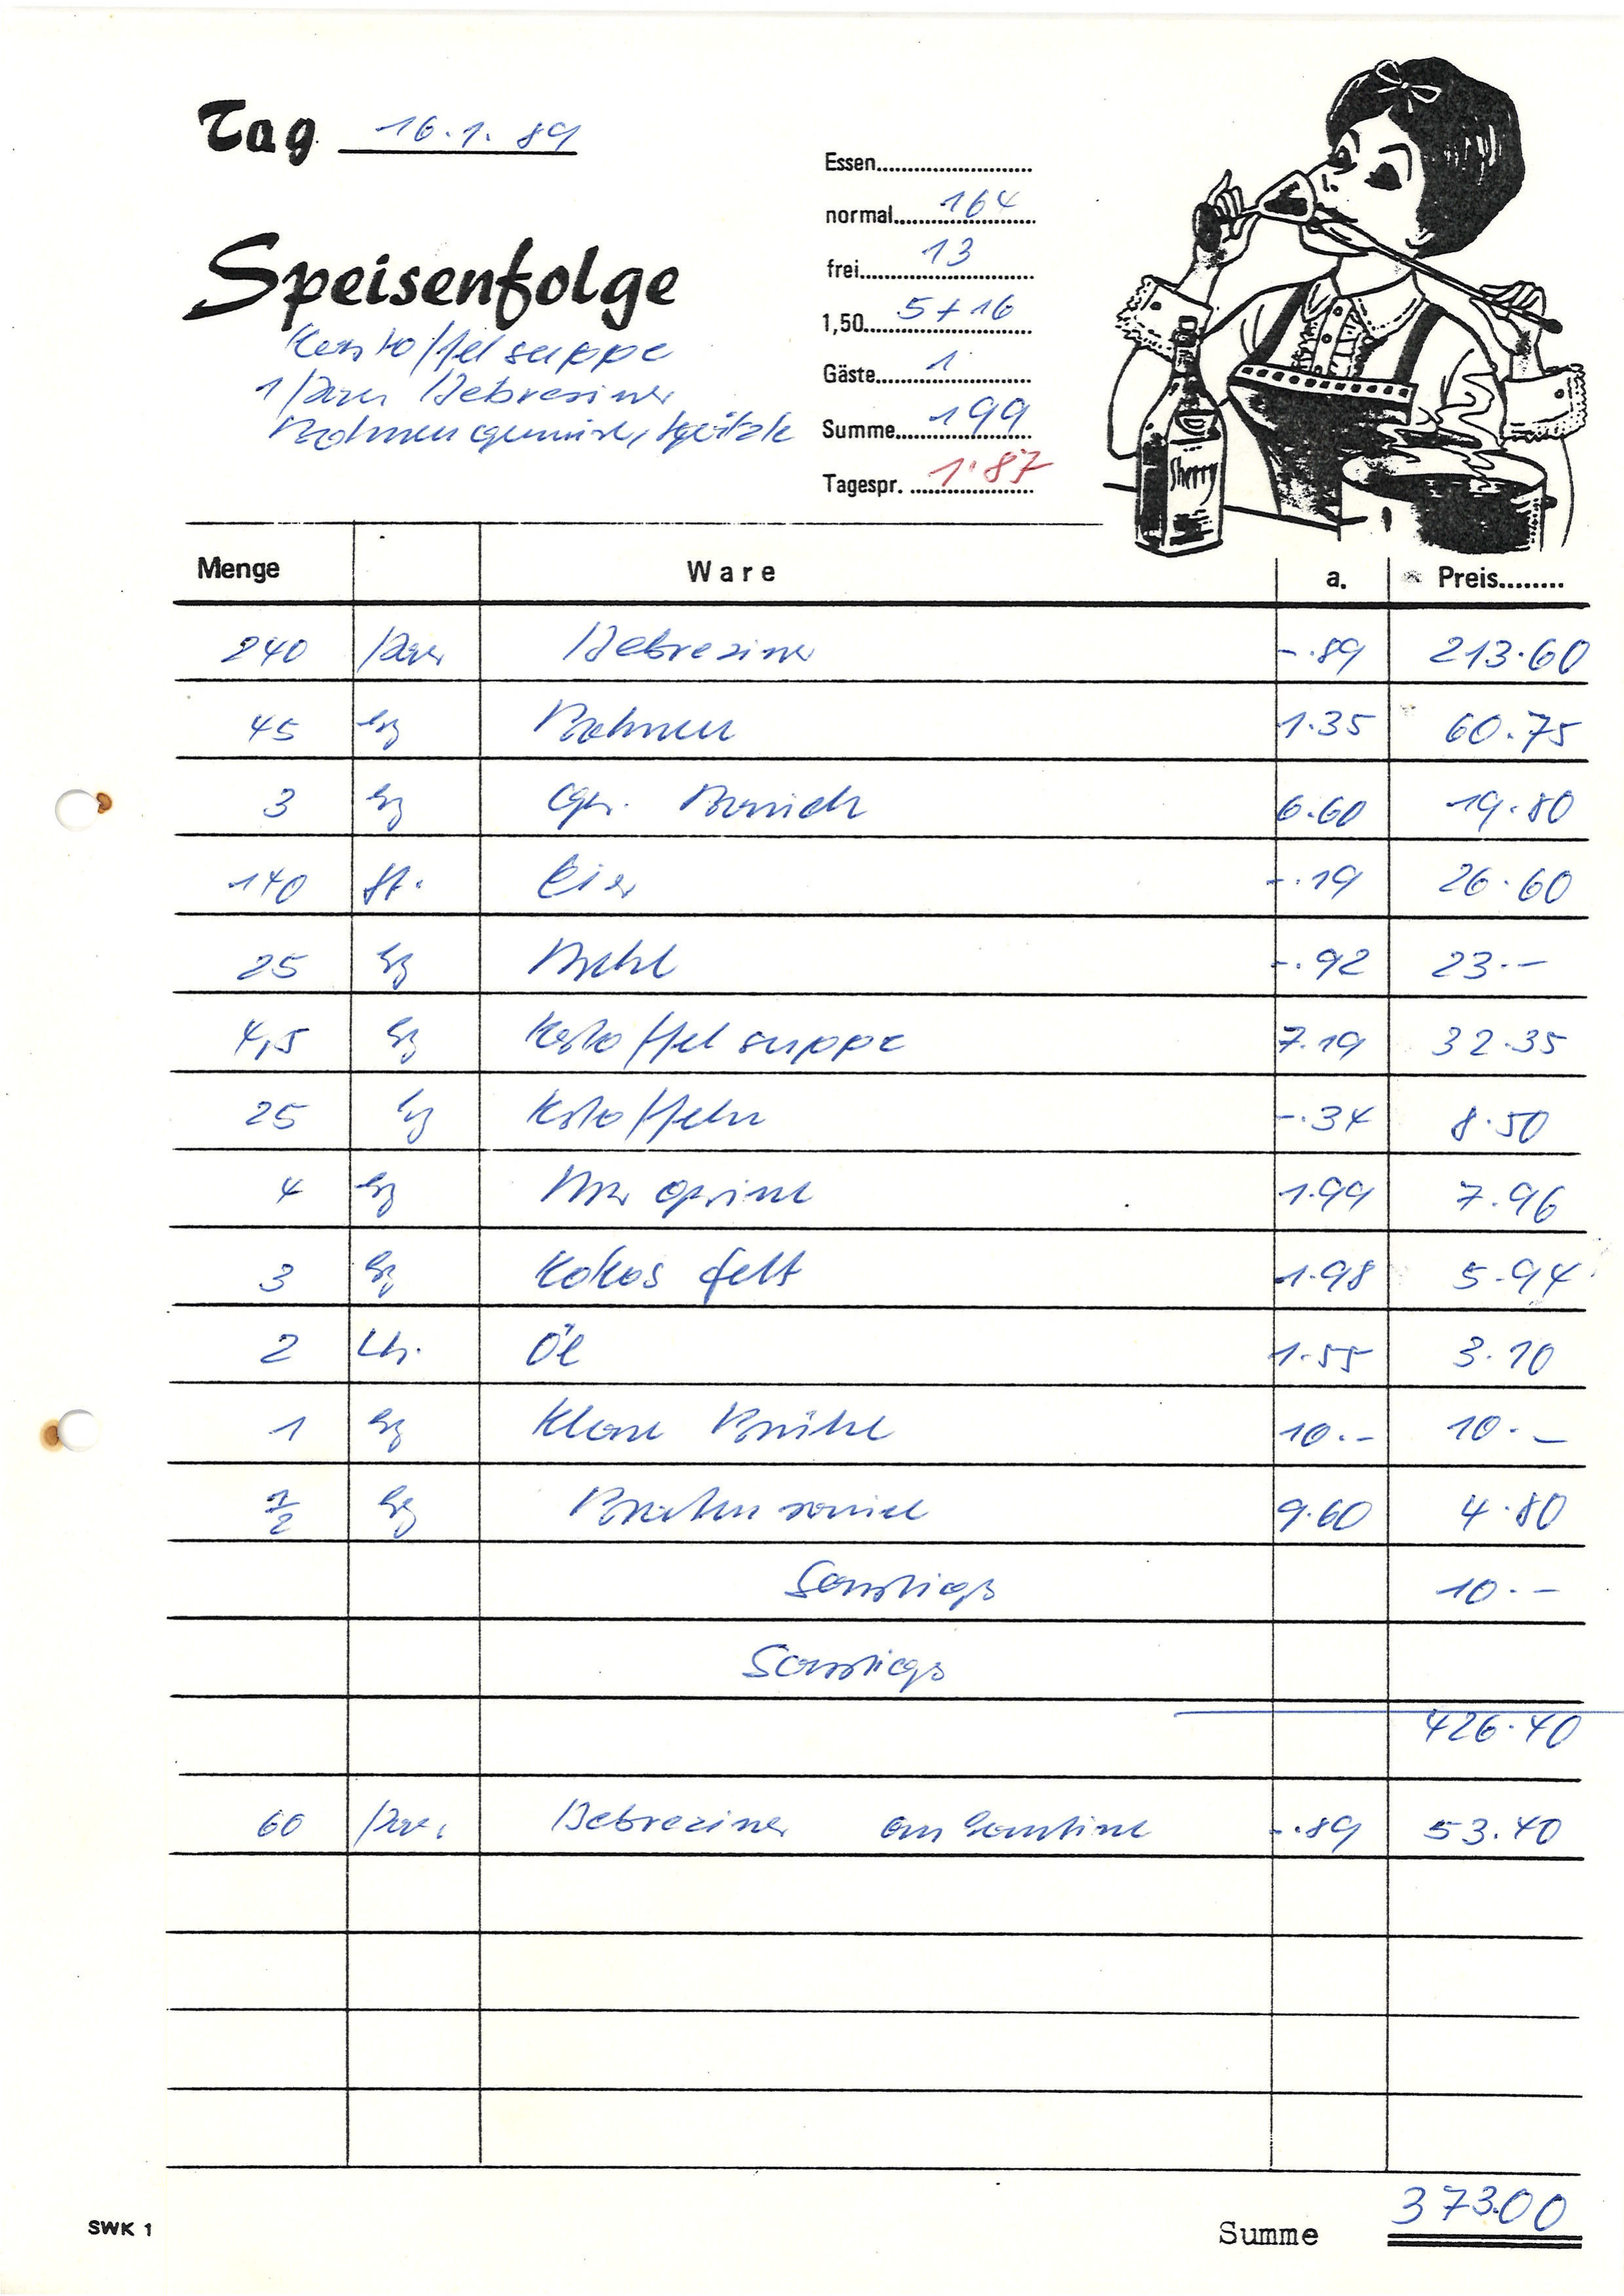 Tag 16.1.89
Speisenfolge
Kartoffelsuppe
1 Paar Debreziner
Bohnengemüse, Spätzle
Essen
normal 164
frei 13
1,50 5 + 16
Gäste 1
Summe 199
Tagespr. 1.87
Sherry
Menge Ware a. Preis
240 Paar Debreziner -.89 213.60
45 kg Bohnen 1.35 60.75
3 kg 6.60 19.80
140 St. Eier -.19 26.60
25 kg Mehl -.92 23.--
4,5 kg Kartoffelsuppe 7.19 32.35
25 kg Kartoffeln -.34 8.50
4 kg Margarine 1.99 7.96
3 kg Kokosfett 1.98 5.94
2 Ltr. Öl 1.55 3.10
1 kg Klare Brühe 10.-- 10.--
1/2 kg Bratensauce 9.60 4.80
Sonstiges 10.--
Sonstiges
426.40
60 Paar Debreziner an Kantine -.89 53.40
SWK 1
Summe 373.00